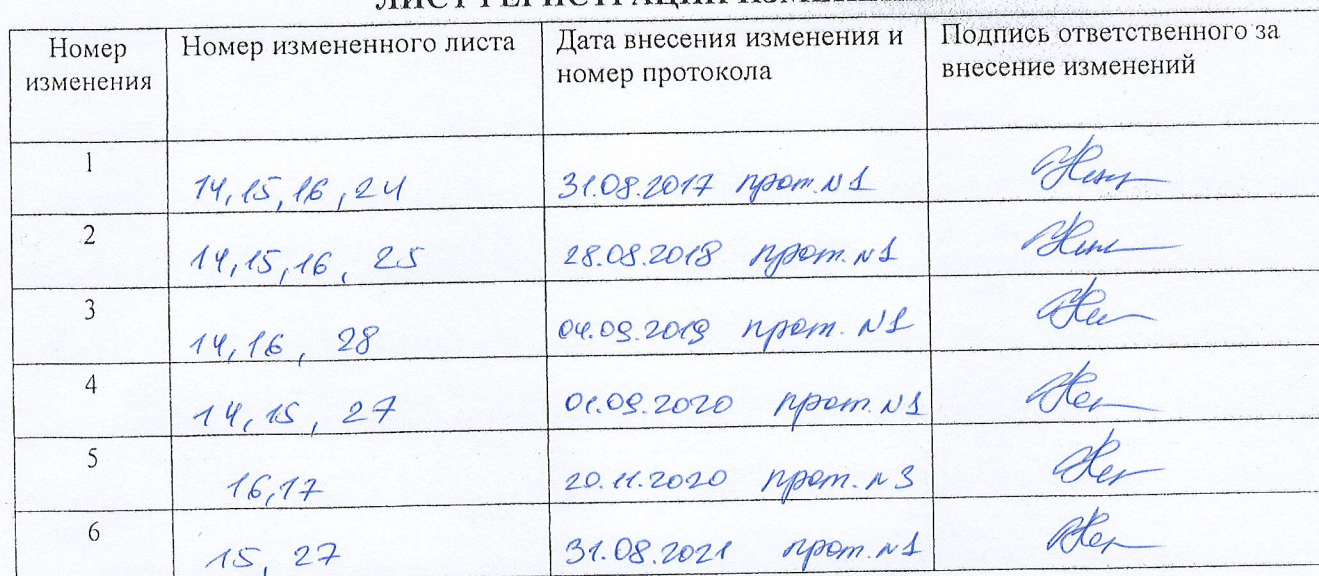 ЛИСТ РЕГИСТРАЦИИ
Номер изменения | Номер измененного листа | Дата внесения изменения и номер протокола | Подпись ответственного за внесение изменений
1 | 14,15,16,24 | 31.08.2017 прот. N1
2 | 14,15,16, 25 | 28.08.2018 прот. N1
3 | 14,16, 28 | 04.09.2019 прот. N1
4 | 14,15, 27 | 01.09.2020 прот. N1
5 | 16,17 | 20.11.2020 прот. N3
6 | 15, 27 | 31.08.2021 прот. N1